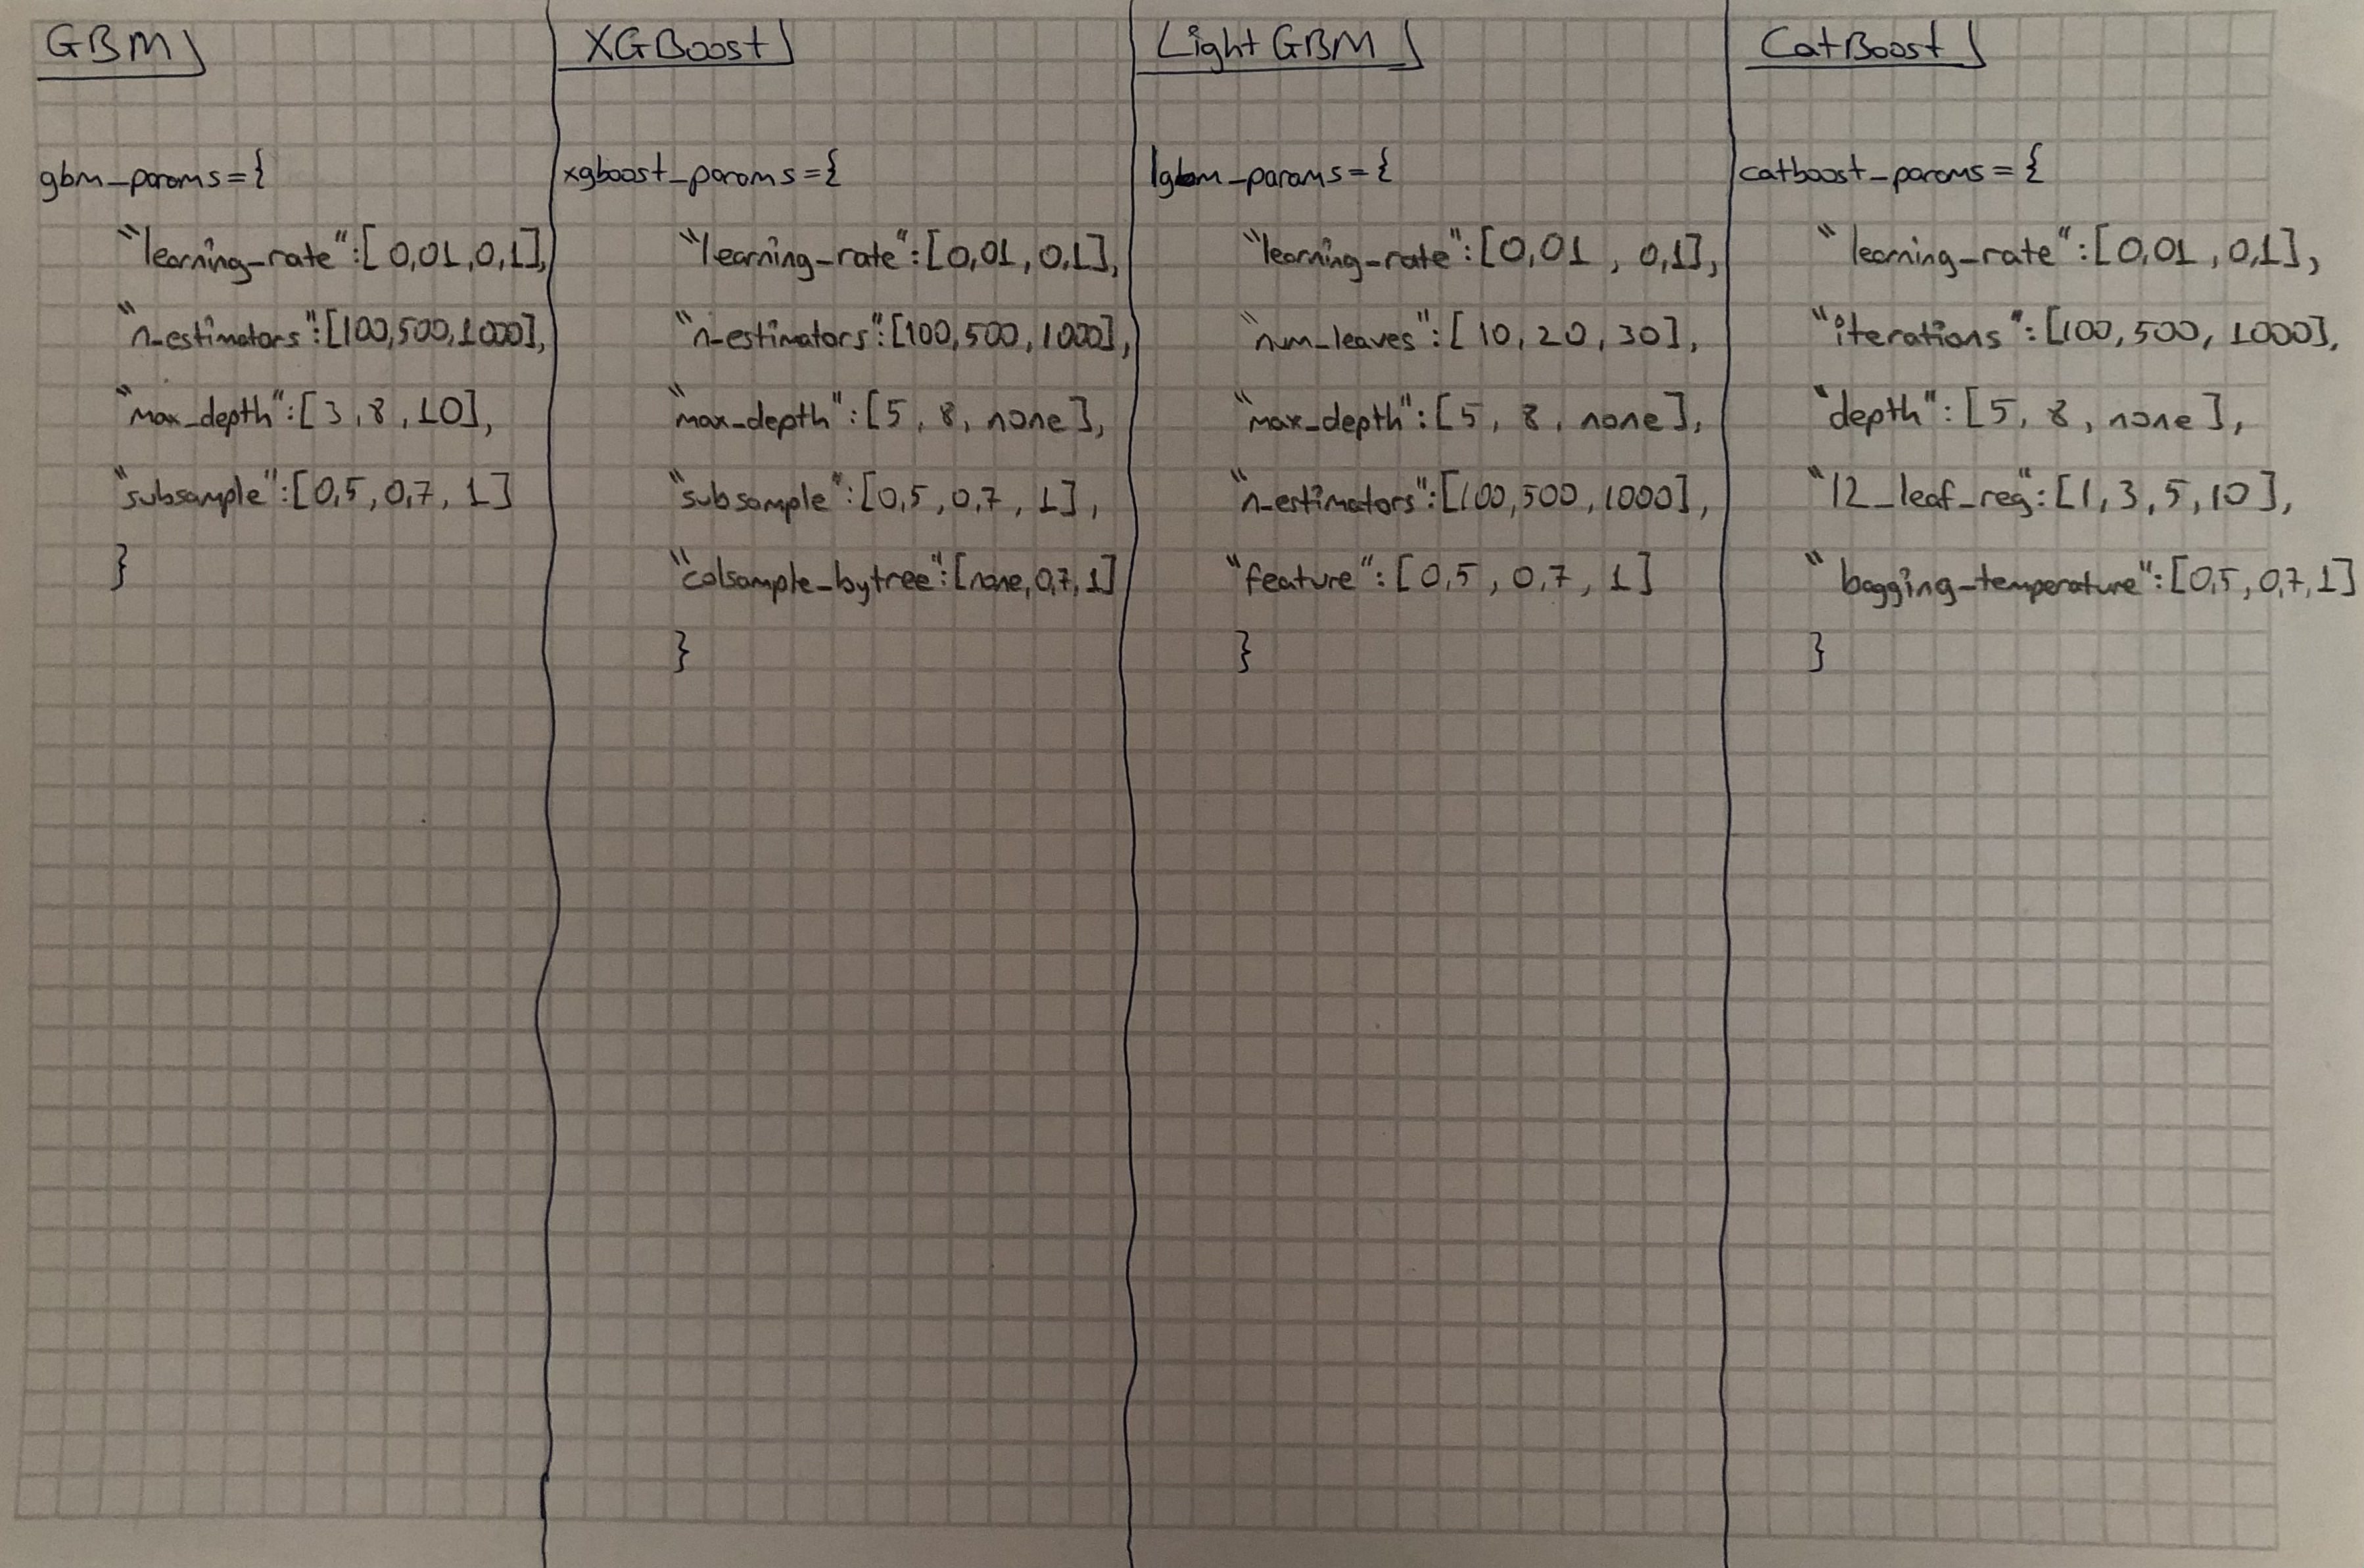 GBM
gbm_params={
"learning_rate":[0,01,0,1],
"n_estimators":[100,500,1000],
"max_depth":[3,8,10],
"subsample":[0,5,0,7,1]
}
XGBoost
xgboost_params={
"learning_rate":[0,01,0,1],
"n_estimators":[100,500,1000],
"max_depth":[5,8,none],
"subsample":[0,5,0,7,1],
"colsample_bytree":[none,0,7,1]
}
LightGBM
lgbm_params={
"learning_rate":[0,01,0,1],
"num_leaves":[10,20,30],
"max_depth":[5,8,none],
"n_estimators":[100,500,1000],
"feature":[0,5,0,7,1]
}
CatBoost
catboost_params={
"learning_rate":[0,01,0,1],
"iterations":[100,500,1000],
"depth":[5,8,none],
"l2_leaf_reg":[1,3,5,10],
"bagging_temperature":[0,5,0,7,1]
}